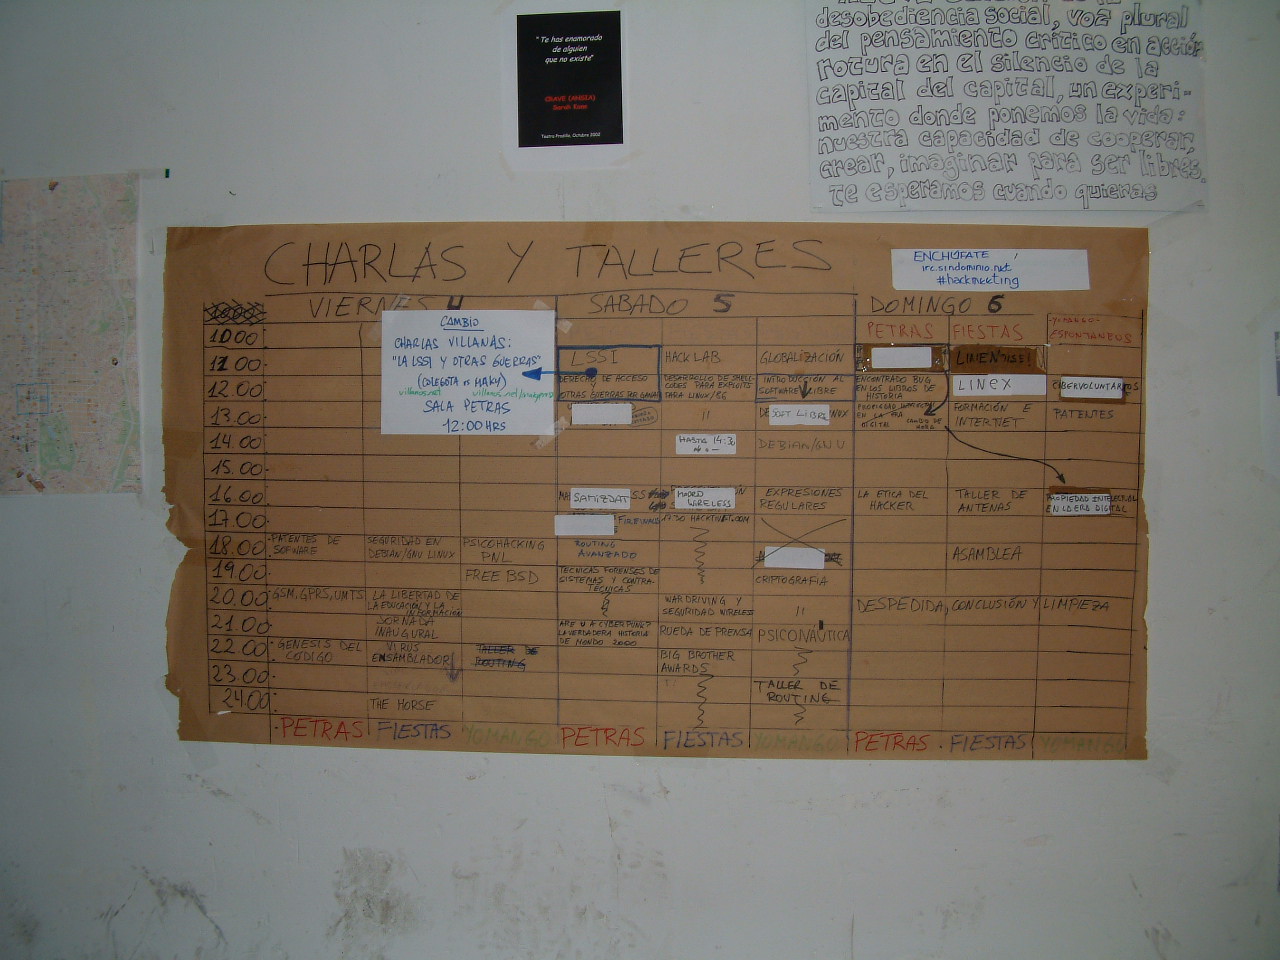 "Te has enamorado
de alguien
que no existe"
CRAVE (ANSIA)
Sarah Kane
Teatro Pradillo, Octubre 2002
desobediencia social, voz plural
del pensamiento crítico en acción
rotura en el silencio de la
capital del capital, un experi-
mento donde ponemos la vida:
nuestra capacidad de cooperar,
crear, imaginar para ser libres.
Te esperamos cuando quieras
CHARLAS Y TALLERES
ENCHÚFATE
irc.sindominio.net
#hackmeeting
VIERNES 4
SABADO 5
DOMINGO 6
PETRAS
FIESTAS
ESPONTANEOS
CAMBIO
CHARLAS VILLANAS:
"LA LSSI Y OTRAS GUERRAS"
villanos.net
SALA PETRAS
12:00 HRS
10.00
11.00
LSSI
HACK LAB
GLOBALIZACIÓN
12.00
DERECHO DE ACCESO
Y
OTRAS GUERRAS
DESARROLLO DE SHELL
CODES PARA EXPLOITS
PARA LINUX/
INTRODUCCIÓN AL
SOFTWARE LIBRE
ENCONTRADO BUG
EN LOS LIBROS DE
HISTORIA
LINEX
CIBERVOLUNTARIOS
13.00
"
SOFT LIBRE
PROPIEDAD
EN LA ERA
DIGITAL
CAMBIO DE
HORA
FORMACIÓN E
INTERNET
PATENTES
14.00
HASTA 14:30
DEBIAN/GNU
15.00
16.00
SAMIZDAT
MADRID
WIRELESS
EXPRESIONES
REGULARES
LA ETICA DEL
HACKER
TALLER DE
ANTENAS
PROPIEDAD INTELECTUAL
EN LA ERA DIGITAL
17.00
FIREWALLS
17.30 HACKTIVIST.COM
18.00
PATENTES DE
SOFWARE
SEGURIDAD EN
DEBIAN/GNU LINUX
PSICOHACKING
PNL
ROUTING
AVANZADO
ASAMBLEA
19.00
FREE BSD
TECNICAS FORENSES DE
SISTEMAS Y CONTRA-
TECNICAS
CRIPTOGRAFIA
20.00
GSM, GPRS, UMTS
LA LIBERTAD DE
LA EDUCACIÓN Y LA
INFORMACIÓN
WAR DRIVING Y
SEGURIDAD WIRELESS
"
DESPEDIDA, CONCLUSIÓN Y LIMPIEZA
21.00
JORNADA
INAUGURAL
ARE U A CYBERPUNK?
LA VERDADERA HISTORIA
DE MONDO 2000
RUEDA DE PRENSA
PSICONÁUTICA
22.00
GENESIS DEL
CODIGO
VIRUS
ENSAMBLADOR
TALLER DE
ROUTING
BIG BROTHER
AWARDS
23.00
TALLER DE
ROUTING
24.00
THE HORSE
PETRAS FIESTAS YOMANGO PETRAS FIESTAS YOMANGO PETRAS FIESTAS YOMANGO